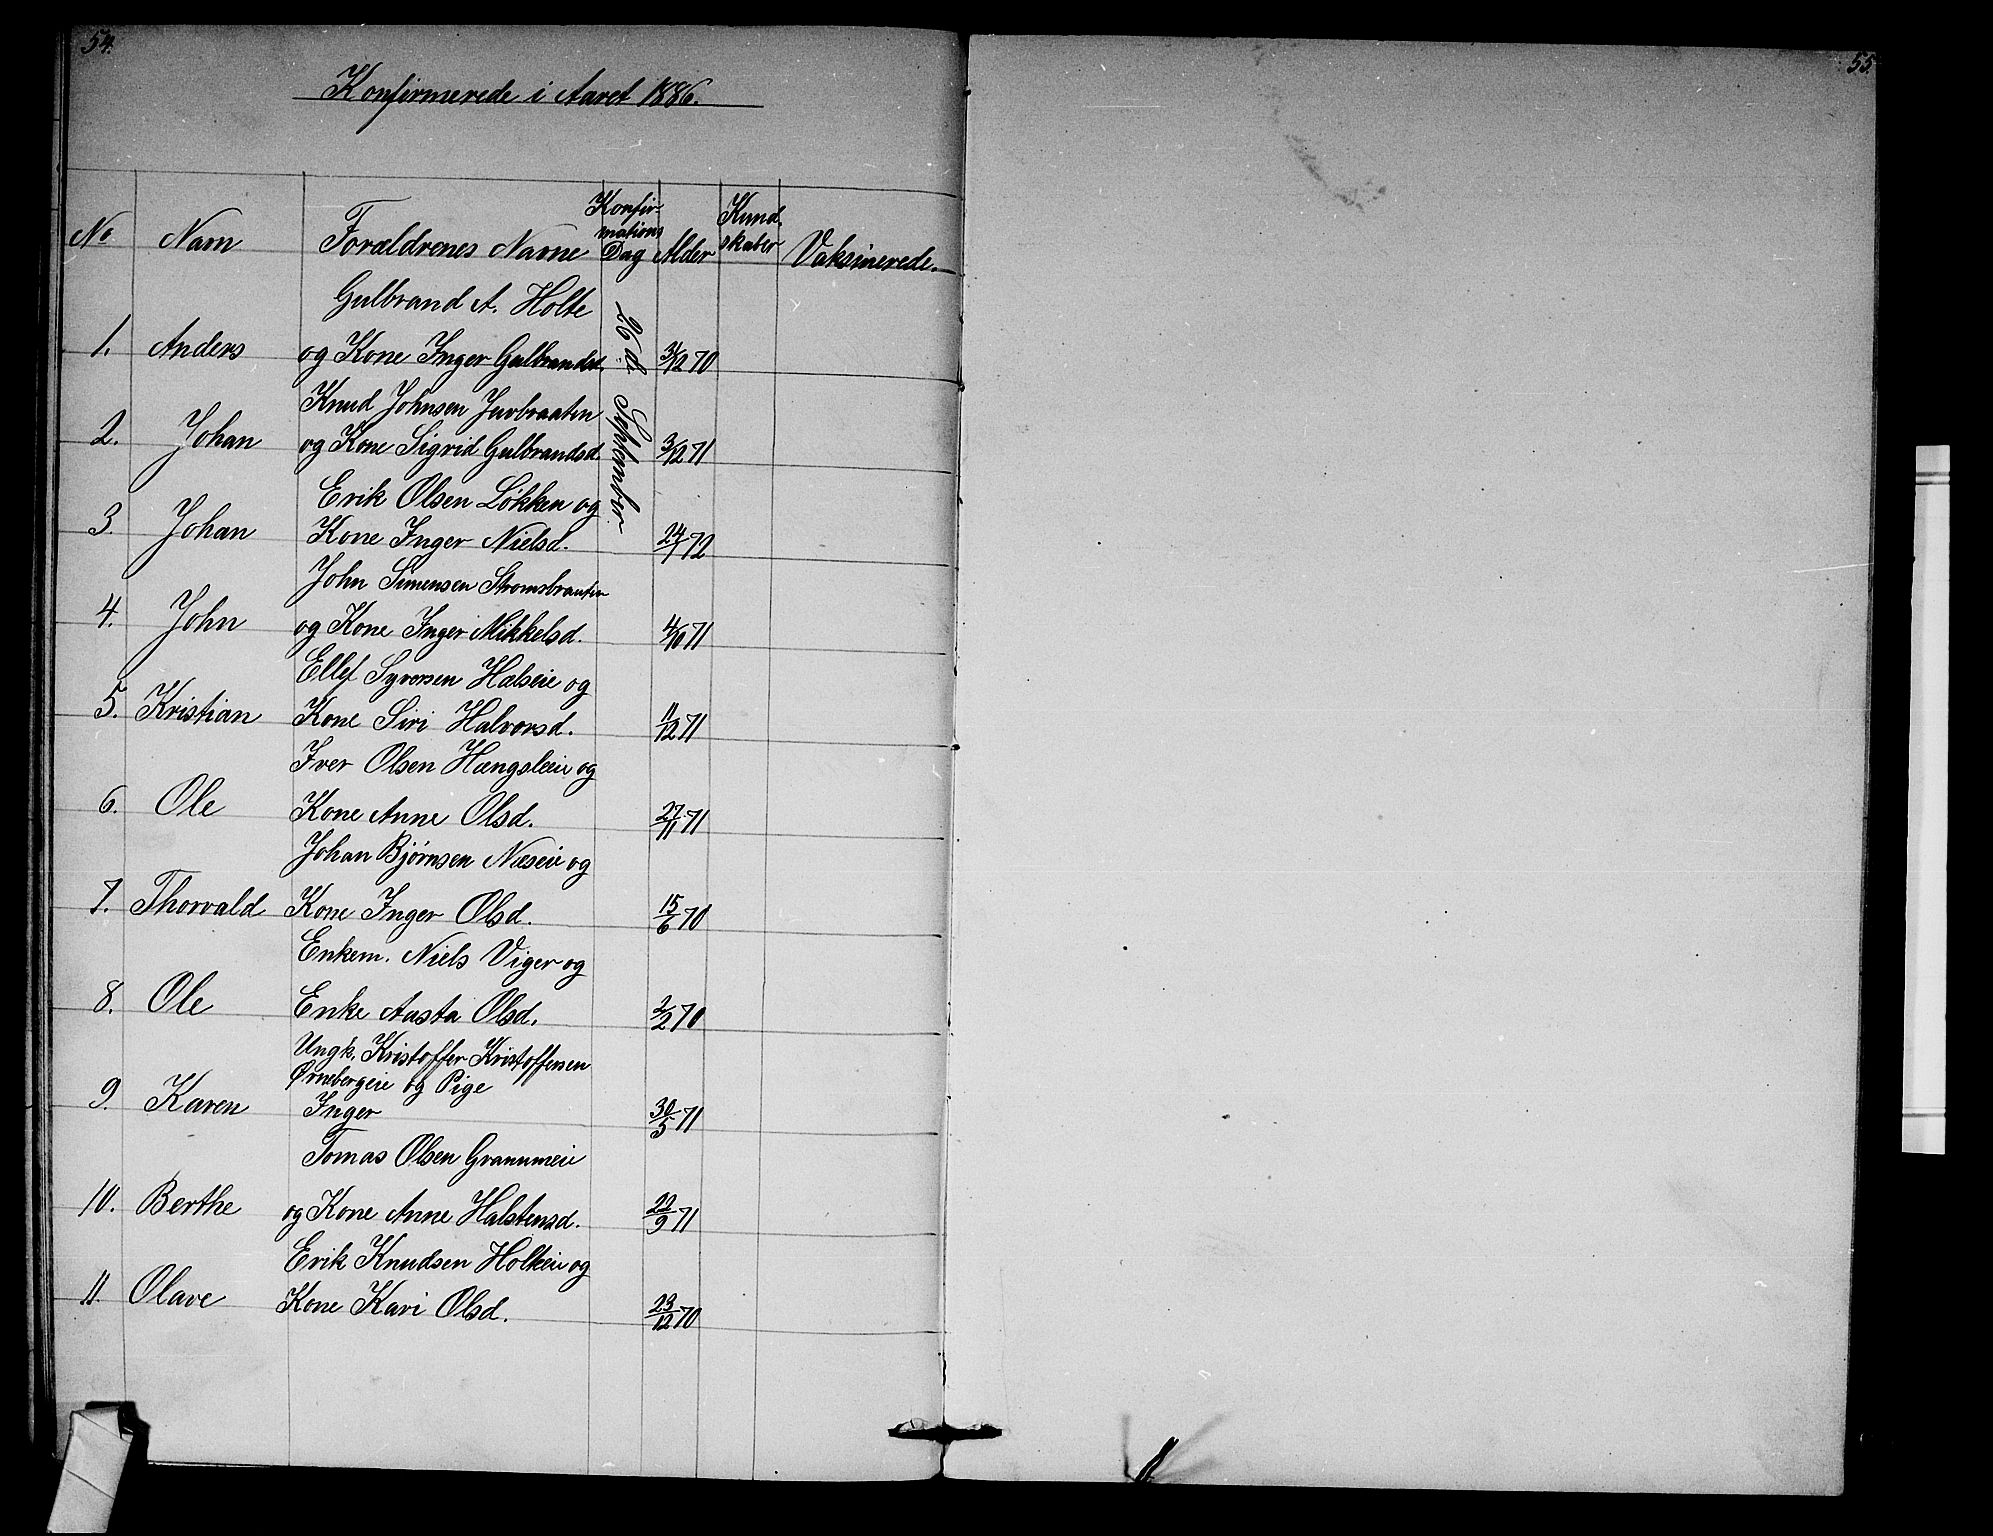 54.
55.
Konfirmerede i Aaret 1886.
No Navn Forældrenes Navne Konfir-mations Dag Alder Kund-skaber Vaksinerede.
26de September
Gulbrand A. Holte
1. Anders og Kone Inger Gulbrandsd. 31/12 70
Knud Johnsen
2. Johan og Kone Sigrid Gulbrandsd. 3/12 71
Erik Olsen Løkken og
3. Johan Kone Inger Nielsd. 24/1 72
John Simensen Strømsbraaten
4. John og Kone Inger Mikkelsd. 4/10 71
Ellef Syversen Halseie og
5. Kristian Kone Siri Halvorsd. 11/12 71
Iver Olsen Hængsleeie og
6. Ole Kone Anne Olsd. 27/11 71
Johan Bjørnsen Næseie og
7. Thorvald Kone Inger Olsd. 15/6 70
Enkem. Niels Viger og
8. Ole Enke Aasta Olsd. 2/2 70
Ungk. Kristoffer Kristoffersen
Ørnebergeie og Pige
9. Karen Inger 30/5 71
Tomas Olsen Granumeie
10. Berthe og Kone Anne Halstensd. 22/9 71
Erik Knudsen Holteeie og
11. Olave Kone Kari Olsd. 23/12 70